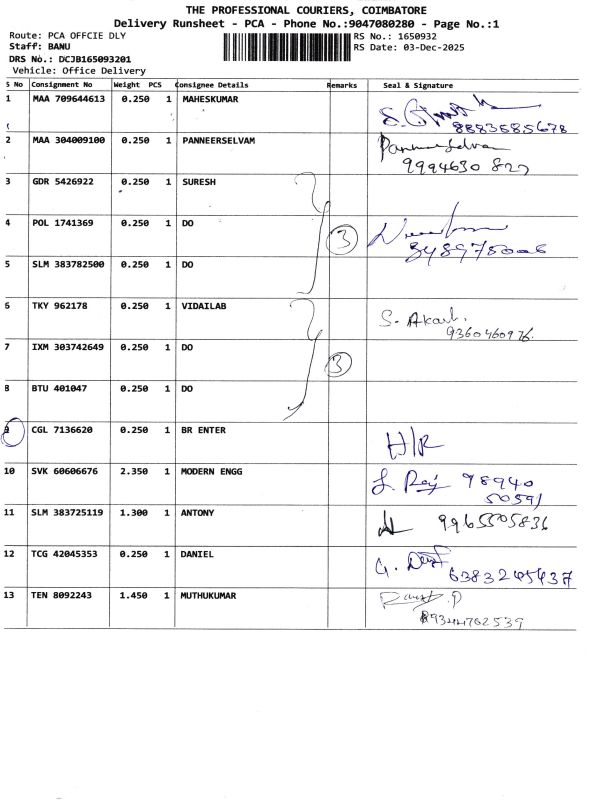 THE PROFESSIONAL COURIERS, COIMBATORE
Delivery Runsheet - PCA - Phone No.:9047080280 - Page No.:1
Route: PCA OFFCIE DLY RS No.: 1650932
Staff: BANU RS Date: 03-Dec-2025
DRS No.: DCJB165093201
Vehicle: Office Delivery
S No Consignment No Weight PCS Consignee Details Remarks Seal & Signature
1 MAA 709644613 0.250 1 MAHESKUMAR
8883585678
2 MAA 304009100 0.250 1 PANNEERSELVAM Panneerselvam
9994630 822
3 GDR 5426922 0.250 1 SURESH
4 POL 1741369 0.250 1 DO 3
5 SLM 383782500 0.250 1 DO
6 TKY 962178 0.250 1 VIDAILAB S. Akash.
9360460976.
7 IXM 303742649 0.250 1 DO 3
8 BTU 401047 0.250 1 DO
9 CGL 7136620 0.250 1 BR ENTER H/R
10 SVK 60606676 2.350 1 MODERN ENGG 98940
50591
11 SLM 383725119 1.300 1 ANTONY 9965505836
12 TCG 42045353 0.250 1 DANIEL
6383245437
13 TEN 8092243 1.450 1 MUTHUKUMAR
9344762539